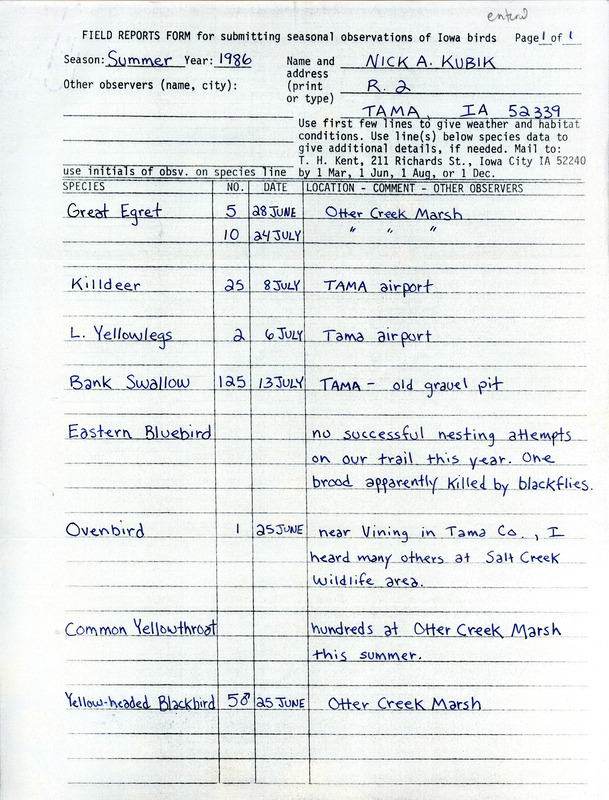 enterd
FIELD REPORTS FORM for submitting seasonal observations of Iowa birds Page 1 of 1
Season: Summer Year: 1986
Name and address (print or type) NICK A. KUBIK
R. 2
TAMA, IA 52339
Other observers (name, city):
Use first few lines to give weather and habitat
conditions. Use line(s) below species data to
give additional details, if needed. Mail to:
T. H. Kent, 211 Richards St., Iowa City IA 52240
use initials of obsv. on species line by 1 Mar, 1 Jun, 1 Aug, or 1 Dec.
SPECIES NO. DATE LOCATION - COMMENT - OTHER OBSERVERS
Great Egret 5 28 JUNE Otter Creek Marsh
10 24 JULY " " "
Killdeer 25 8 JULY TAMA airport
L. Yellowlegs 2 6 JULY Tama airport
Bank Swallow 125 13 JULY TAMA - old gravel pit
Eastern Bluebird no successful nesting attempts
on our trail this year. One
brood apparently killed by blackflies.
Ovenbird 1 25 JUNE near Vining in Tama Co., I
heard many others at Salt Creek
Wildlife area.
Common Yellowthroat hundreds at Otter Creek Marsh
this summer.
Yellow-headed Blackbird 5♂ 25 JUNE Otter Creek Marsh